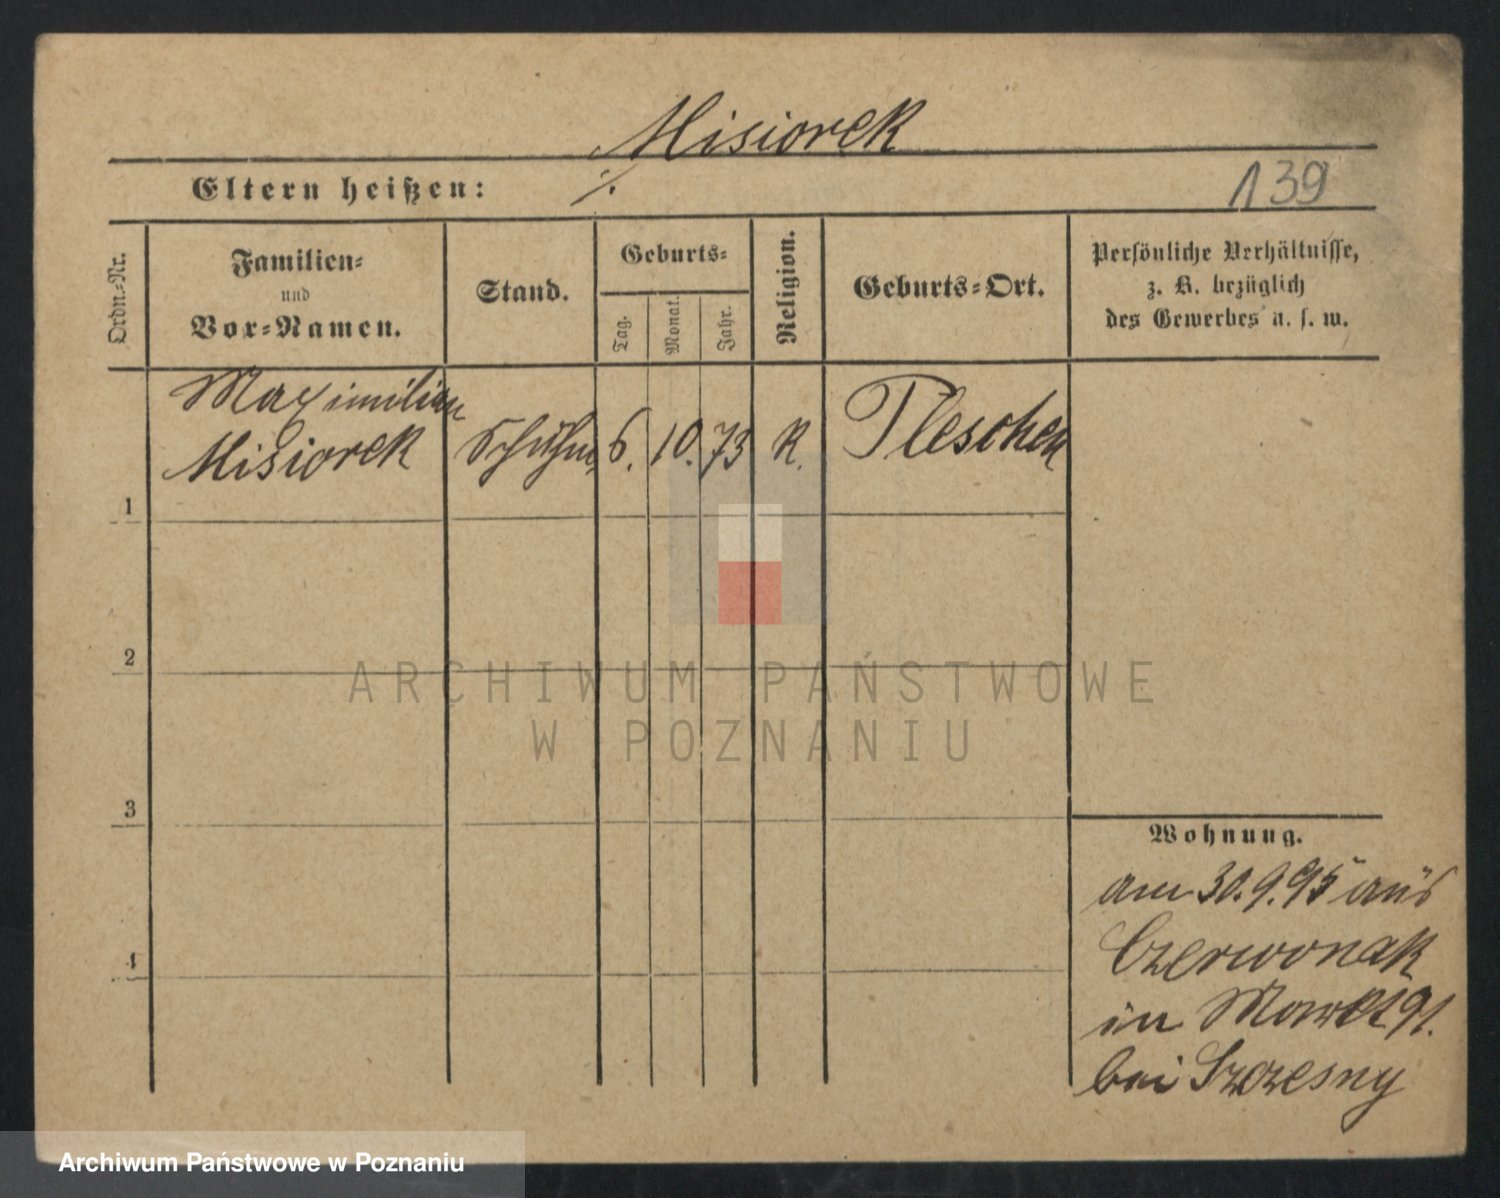 Misiorek
Eltern heißen: ./.
139
Ordn.-Nr.
Familien-
und
Vor-Namen.
Stand.
Geburts-
Tag.
Monat.
Jahr.
Religion.
Geburts-Ort.
Persönliche Verhältnisse,
z. B. bezüglich
des Gewerbes u. s. w.
Maximilian
Misiorek
6. 10. 73 K. Pleschen
1
2
3
4
Wohnung.
am 30.9.95 aus
Czerwonak
in Markt 91.
bei Szczesny
ARCHIWUM PAŃSTWOWE
W POZNANIU
Archiwum Państwowe w Poznaniu